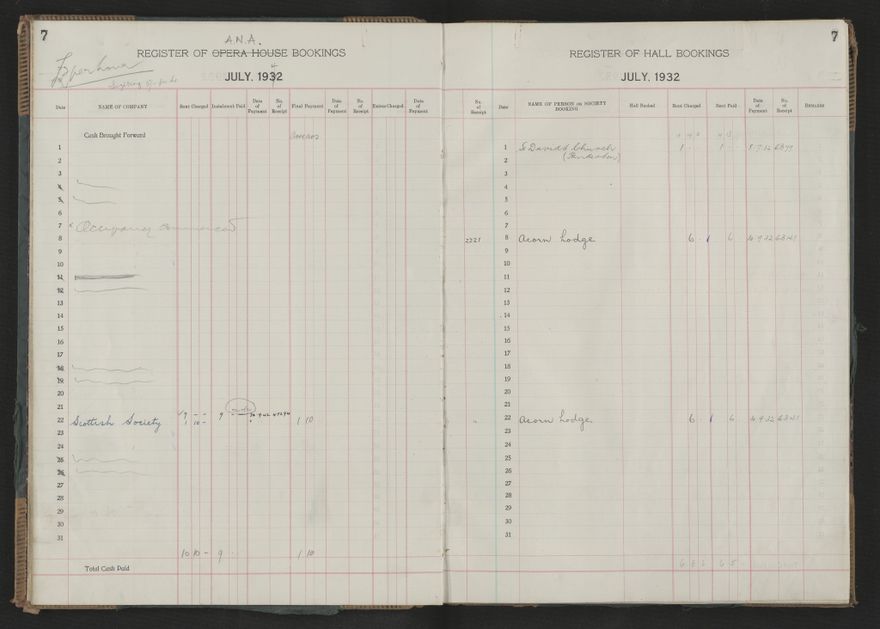 7
A.N.A.
REGISTER OF OPERA HOUSE BOOKINGS
JULY, 1932
4
Date
NAME OF COMPANY
Rent Charged
Instalment Paid
Date of Payment
No. of Receipt
Final Payment
Date of Payment
No. of Receipt
Extras Charged
Date of Payment
Cash Brought Forward
1
2
3
4
5
6
7 Occupancy commenced
8
9
10
11
12
13
14
15
16
17
18
19
20
21
22 Scottish Society 9 - - 9
1 10 - 1 10
23
24
25
26
27
28
29
30
31
10 10 - 9 1 10
Total Cash Paid
7
REGISTER OF HALL BOOKINGS
JULY, 1932
No. of Receipt
Date
NAME OF PERSON OR SOCIETY BOOKING
Hall Booked
Rent Charged
Rent Paid
Date of Payment
No. of Receipt
REMARKS
1 St Davids Church 1 1 1.7.32
2
3
4
5
6
7
2221 8 Acorn Lodge 6 6
9
10
11
12
13
14
15
16
17
18
19
20
21
" 22 Acorn Lodge 6 6
23
24
25
26
27
28
29
30
31